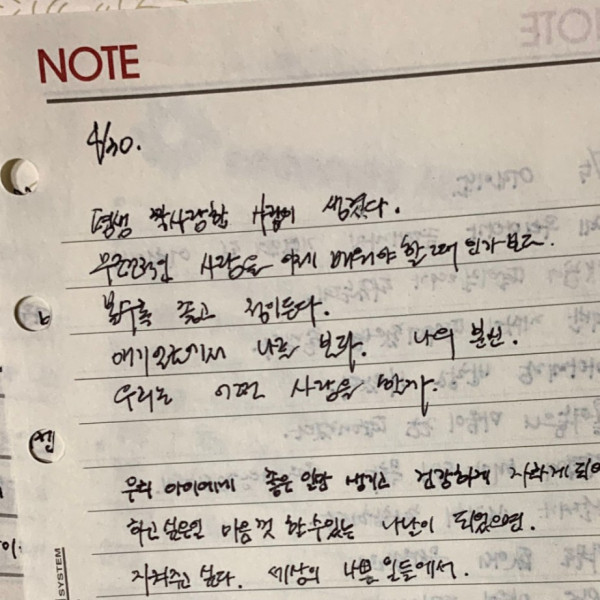 NOTE
4/30.
평생 짝사랑할 사람이 생겼다.
무조건적인 사랑을 이제 배워야 할 때 인가보다.
볼수록 좋고 정이든다.
애기 나를 보라. 나의 분신.
우리는 어떤 사랑을 할까.
우리 아이에게 좋은 일만 생기고 건강하게 자라게 되어
하고싶은일 마음껏 할 수 있는 나날이 되었으면.
지켜주고 싶다. 세상의 나쁜 일들에서.
SYSTEM